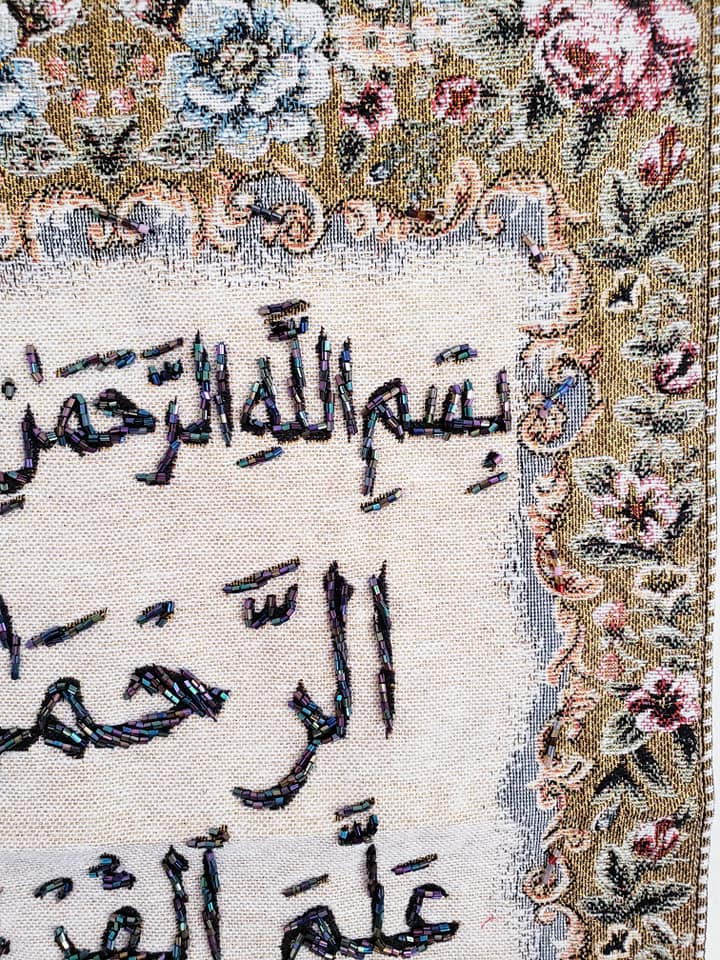 بِسْمِ اللَّهِ الرَّحْمَٰنِ
الرَّحْمَ
عَلَّمَ الْقُ